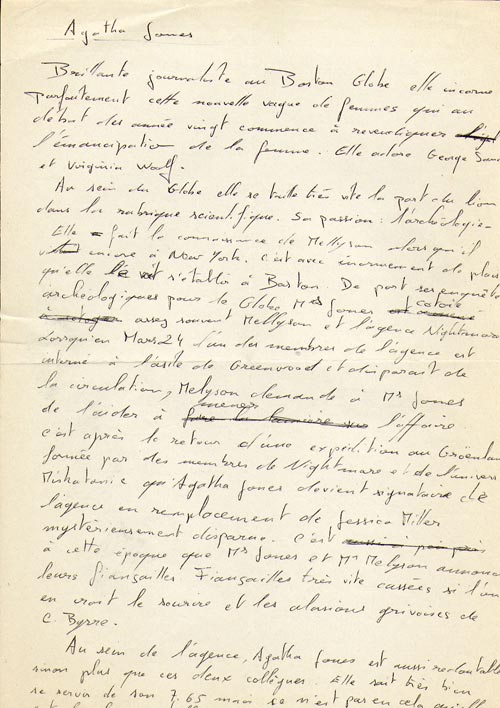 Agatha Jones
Brillante journaliste au Boston Globe elle incarne
parfaitement cette nouvelle vague de femmes qui au
début des année vingt commence à revendiquer
l'émancipation de la femme. Elle adore George San
et Virginia Woolf.
Au sein du Globe elle se taille très vite la part du lion
dans la rubrique scientifique. Sa passion : l'archéologie.
Elle fait la connaissance de Mellyson alors qu'il
encore à New York. C'est avec de plais
qu'elle le voit s'établir à Boston. De part ses enquête
archéologiques pour le Globe Ms Jones cotoie
assez souvent Mellyson et l'agence Nightmare
Lorsqu'en Mars 24 l'un des membres de l'agence est
interné à l'asile de Greenwood et disparait de
la circulation, Melyson demande à Ms Jones
de l'aider à mener l'affaire
C'est après le retour d'une expédition au Groenlan
formée par des membres de Nightmare et de l'univers
Miskatonic qu'Agatha Jones devient signataire de
l'agence en remplacement de Jessica Miller
mystérieusement disparue. C'est
à cette époque que Ms Jones et Mr Melyson annonc
leurs fiançailles. Fiançailles très vite cassées si l'on
en croit le sourire et les alusions grivoises de
C. Byrre.
Au sein de l'agence, Agatha Jones est aussi redoutable
sinon plus que ces deux collègues. Elle sait très bien
se servir de son 7.65 mais ce n'est pas en cela qu'elle